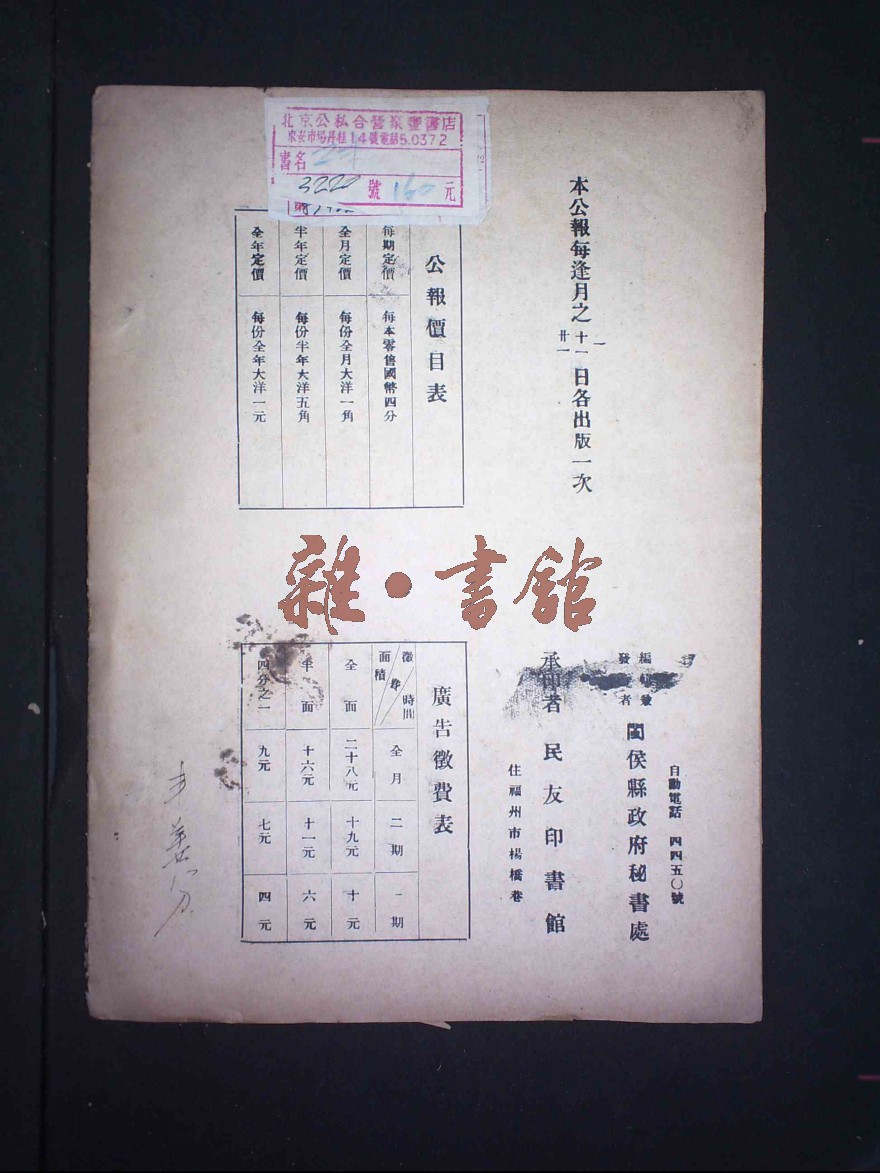 本公報每逢月之一十一廿一日各出版一次
公報價目表
每期定價 每本零售國幣四分
全月定價 每份全月大洋一角
半年定價 每份半年大洋五角
全年定價 每份全年大洋一元
北京公私合營
店
東安市場丹桂14號電話5.0372
書名
3220 號 160 元
雜·書館
自動電話 四四五〇號
編
發 者 閩侯縣政府秘書處
承印者 民友印書館
住福州市楊橋巷
廣告徵費表
徵 時間 面積 全月 二期 一期
全面 二十八元 十九元 十元
半面 十六元 十一元 六元
四分之一 九元 七元 四元